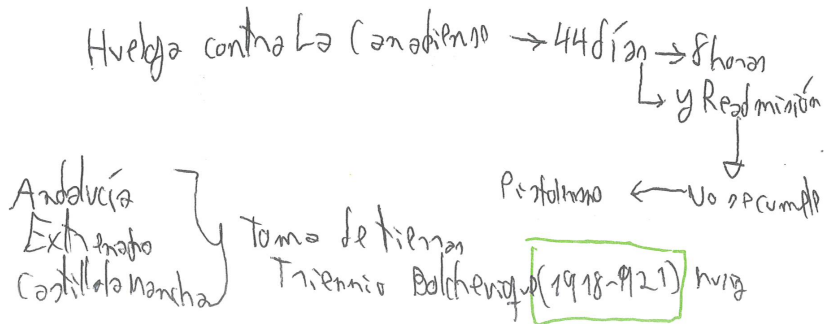 Huelga contra La Canadiense → 44 días → 8 horas
↳ y Readmisión
Pistolerismo ← No se cumple
Andalucía
Extremadura
Castilla la Mancha
Toma de tierras
Triennio Bolchevique (1918-1921)